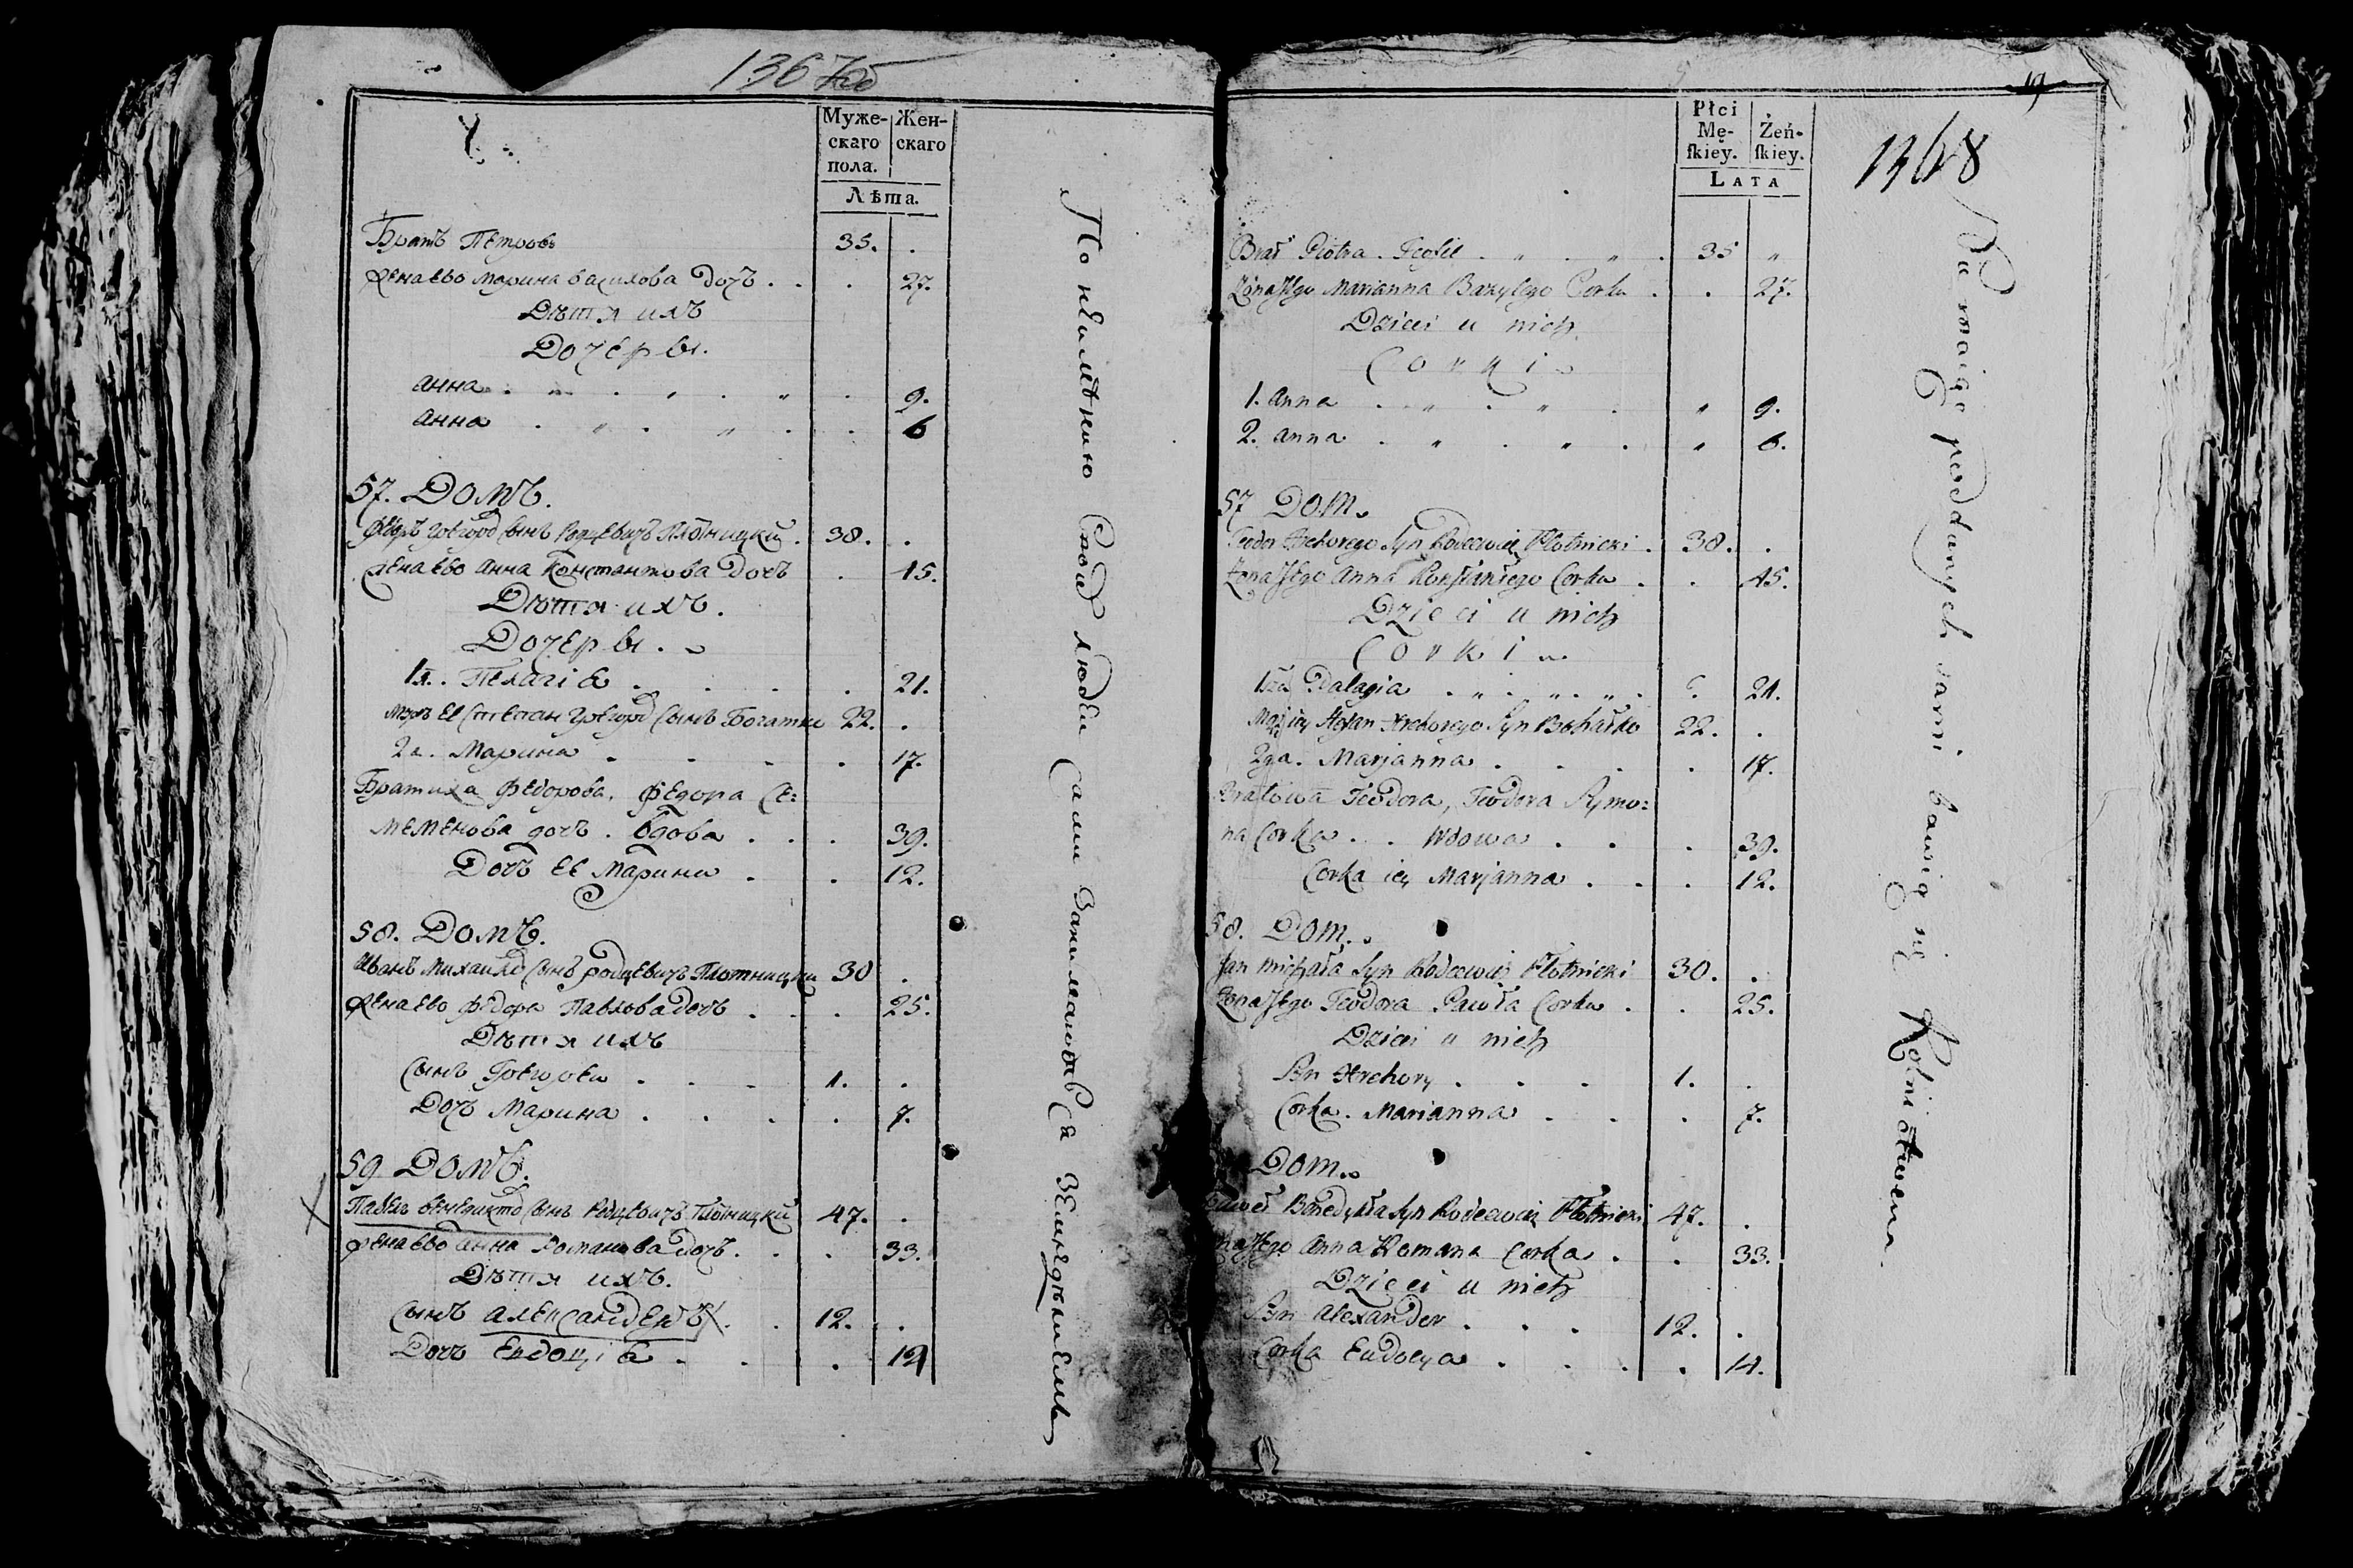 1367об
Муже-
скаго
пола.
Жен-
скаго
Лѣта.
Братъ Петровъ 35. .
Жена ево Марина васильова Дочъ . . . 27.
Дѣтя ихъ
Дочеры.
анна . „ . „ . „ . 9.
анна . „ . „ . . 6
57. Домъ.
Федоръ Грегород Сынъ Родцевичъ Плотницкий . 38. .
Жена ево Анна Константова Дочъ . 45.
Дѣтя ихъ.
Дочеры.
1я. Пелагіа . . . . 21.
Мужъ Ее Степан Грегород Сынъ Богатко 22. .
2а. Марина . . . . 17.
Братиха Федорова. Федора Се:
мененова дочъ. Вдова . . . 39.
Дочъ Ее Марина . . 12.
58. Домъ.
Иванъ Михайлов Сынъ родцевичъ Плотницки 30 .
Жена ево Федора Павлова дочъ . . . 25.
Дѣтя ихъ
Сынъ Грегорей . . . 1. .
Дочъ Марина . . . . 7.
59 Домъ.
Павелъ венедикто Сынъ Родцевичъ Плотницкий 47. .
Жена ево анна Романова дочъ . . . 33.
Дѣтя ихъ.
Сынъ александеръ . . 12. .
Дочъ Евдоціа . . . 14
По неимѣнию Своих людей Сами Занимаются Земледѣлиемъ
19
1368
Płci
Mę-
ſkiey.
Żeń-
ſkiey.
LATA
Brat Piotra. Teofil . „ . „ . 35 „
Żona Jego Marianna Bazylego Corka . . 27.
Dzieci u nich
Corki
1. Anna . „ . „ . „ 9.
2. Anna . „ . „ . „ 6.
57 Dom.
Teodor Hrehorego Syn Rodcewicz Płotnicki . 38. .
Żona Jego Anna Konstantego Corka . . 45.
Dzieci u nich
Corki
1sza Palagia . „ . „ . „ . 21.
Mąż iey Stefan Hrehorego Syn Bohatko 22. .
2ga. Marjanna . . . . 17.
Bratowa Teodora, Teodora Symo:
na Corka . . Wdowa . . . 39.
Corka iey Marjanna . . . 12.
58. Dom.
Jan Michała Syn Rodcewicz Płotnicki 30. .
Żona Jego Teodora Pawła Corka . . 25.
Dzieci u nich
Syn Hrehory . . . 1. .
Corka. Marianna . . . 7.
Dom.
Paweł Benedykta Syn Rodcewicz Płotnicki 47. .
Anna Romana Corka . . 33.
Dzieci u nich
Syn Alexander . . . 12. .
Corka Eudocya . . . . 14.
Nie maiąc poddanych sami bawią się Rolnictwem